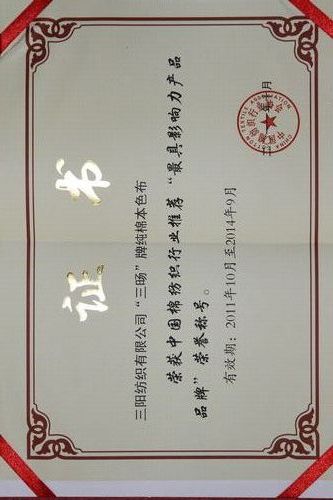 证书
三阳纺织有限公司“三旸”牌纯棉本色布
荣获中国棉纺织行业推荐“最具影响力产品
品牌”荣誉称号。
有效期：2011年10月至2014年9月